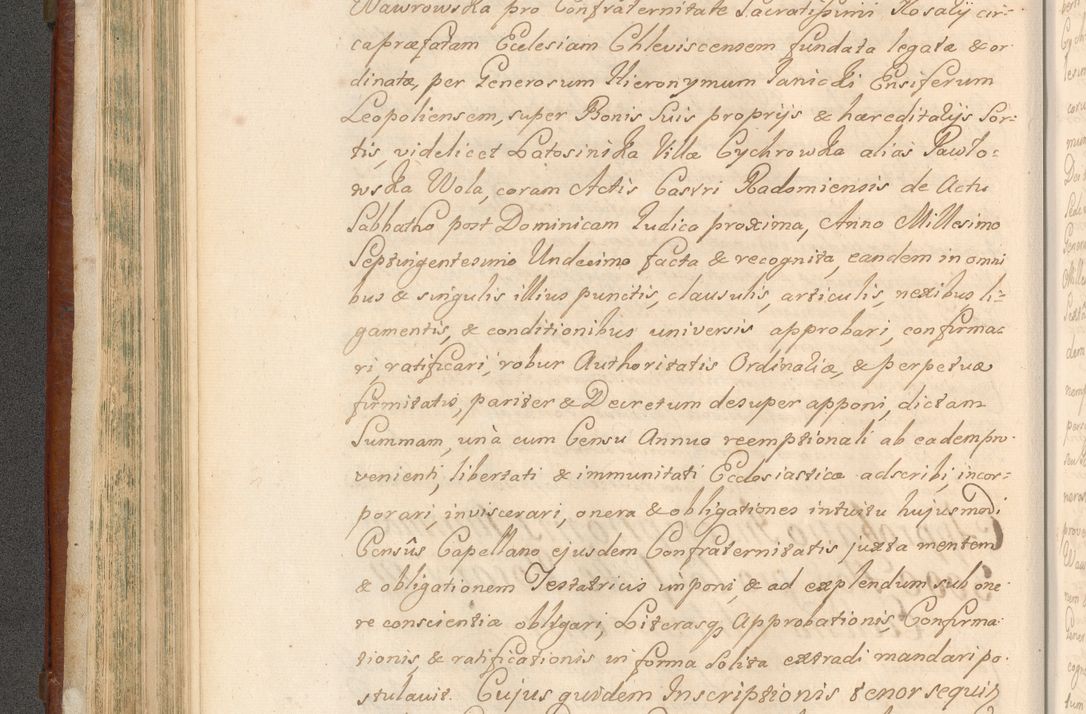 Wawrowska pro Confraternitate Sacratissimi Rosarij cir-
ca præfatam Ecclesiam Chleviscensem fundata legatæ & or
dinatæ, per Generosum Hieronymum Janicki Ensiferum
Leopoliensem, super Bonis Suis proprijs & hæreditarijs Sor-
tis, videlicet Latosinska Villæ Cychrowska alias Pawło-
wska Wola, coram Actis Castri Radomiensis de Actu
Sabbatho post Dominicam Judica proxima, Anno Millesimo
Septingentesimo Undecimo facta & recognita, eandem in omni
bus & singulis illius punctis, clausulis, articulis, nexibus li-
gamentis, & conditionibus universis approbari, confirma-
ri, ratificari, robur Authoritatis Ordinariæ, & perpetuæ
firmitatis, pariter & Decretum desuper apponi, dictam
Summam, unà cum Censu Annuo reemptionali ab eadem pro-
venienti, libertati & immunitati Ecclesiasticæ adscribi incor-
porari, inviscerari, onera & obligationes intuitu hujusmodi
Censûs Capellano ejusdem Confraternitatis, juxta mentem
& obligationem Testatricis imponi, & ad explendum sub one
re conscientiæ obligari, Literasq Approbationis, Confirma-
tionis, & ratificationis in forma solita extradi mandari po-
stulavit. Cujus quidem Inscriptionis tenor sequit